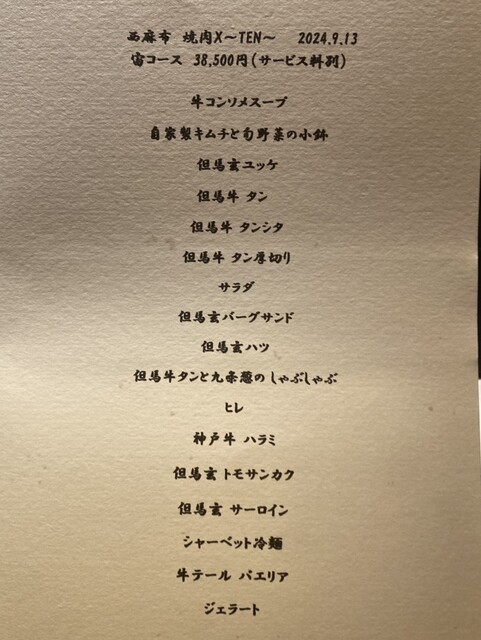 西麻布 焼肉X〜TEN〜 2024.9.13
宙コース 38,500円(サービス料別)
牛コンソメスープ
自家製キムチと旬野菜の小鉢
但馬玄ユッケ
但馬牛 タン
但馬牛 タンシタ
但馬牛 タン厚切り
サラダ
但馬玄バーグサンド
但馬玄ハツ
但馬牛タンと九条葱のしゃぶしゃぶ
ヒレ
神戸牛 ハラミ
但馬玄 トモサンカク
但馬玄 サーロイン
シャーベット冷麺
牛テール パエリア
ジェラート